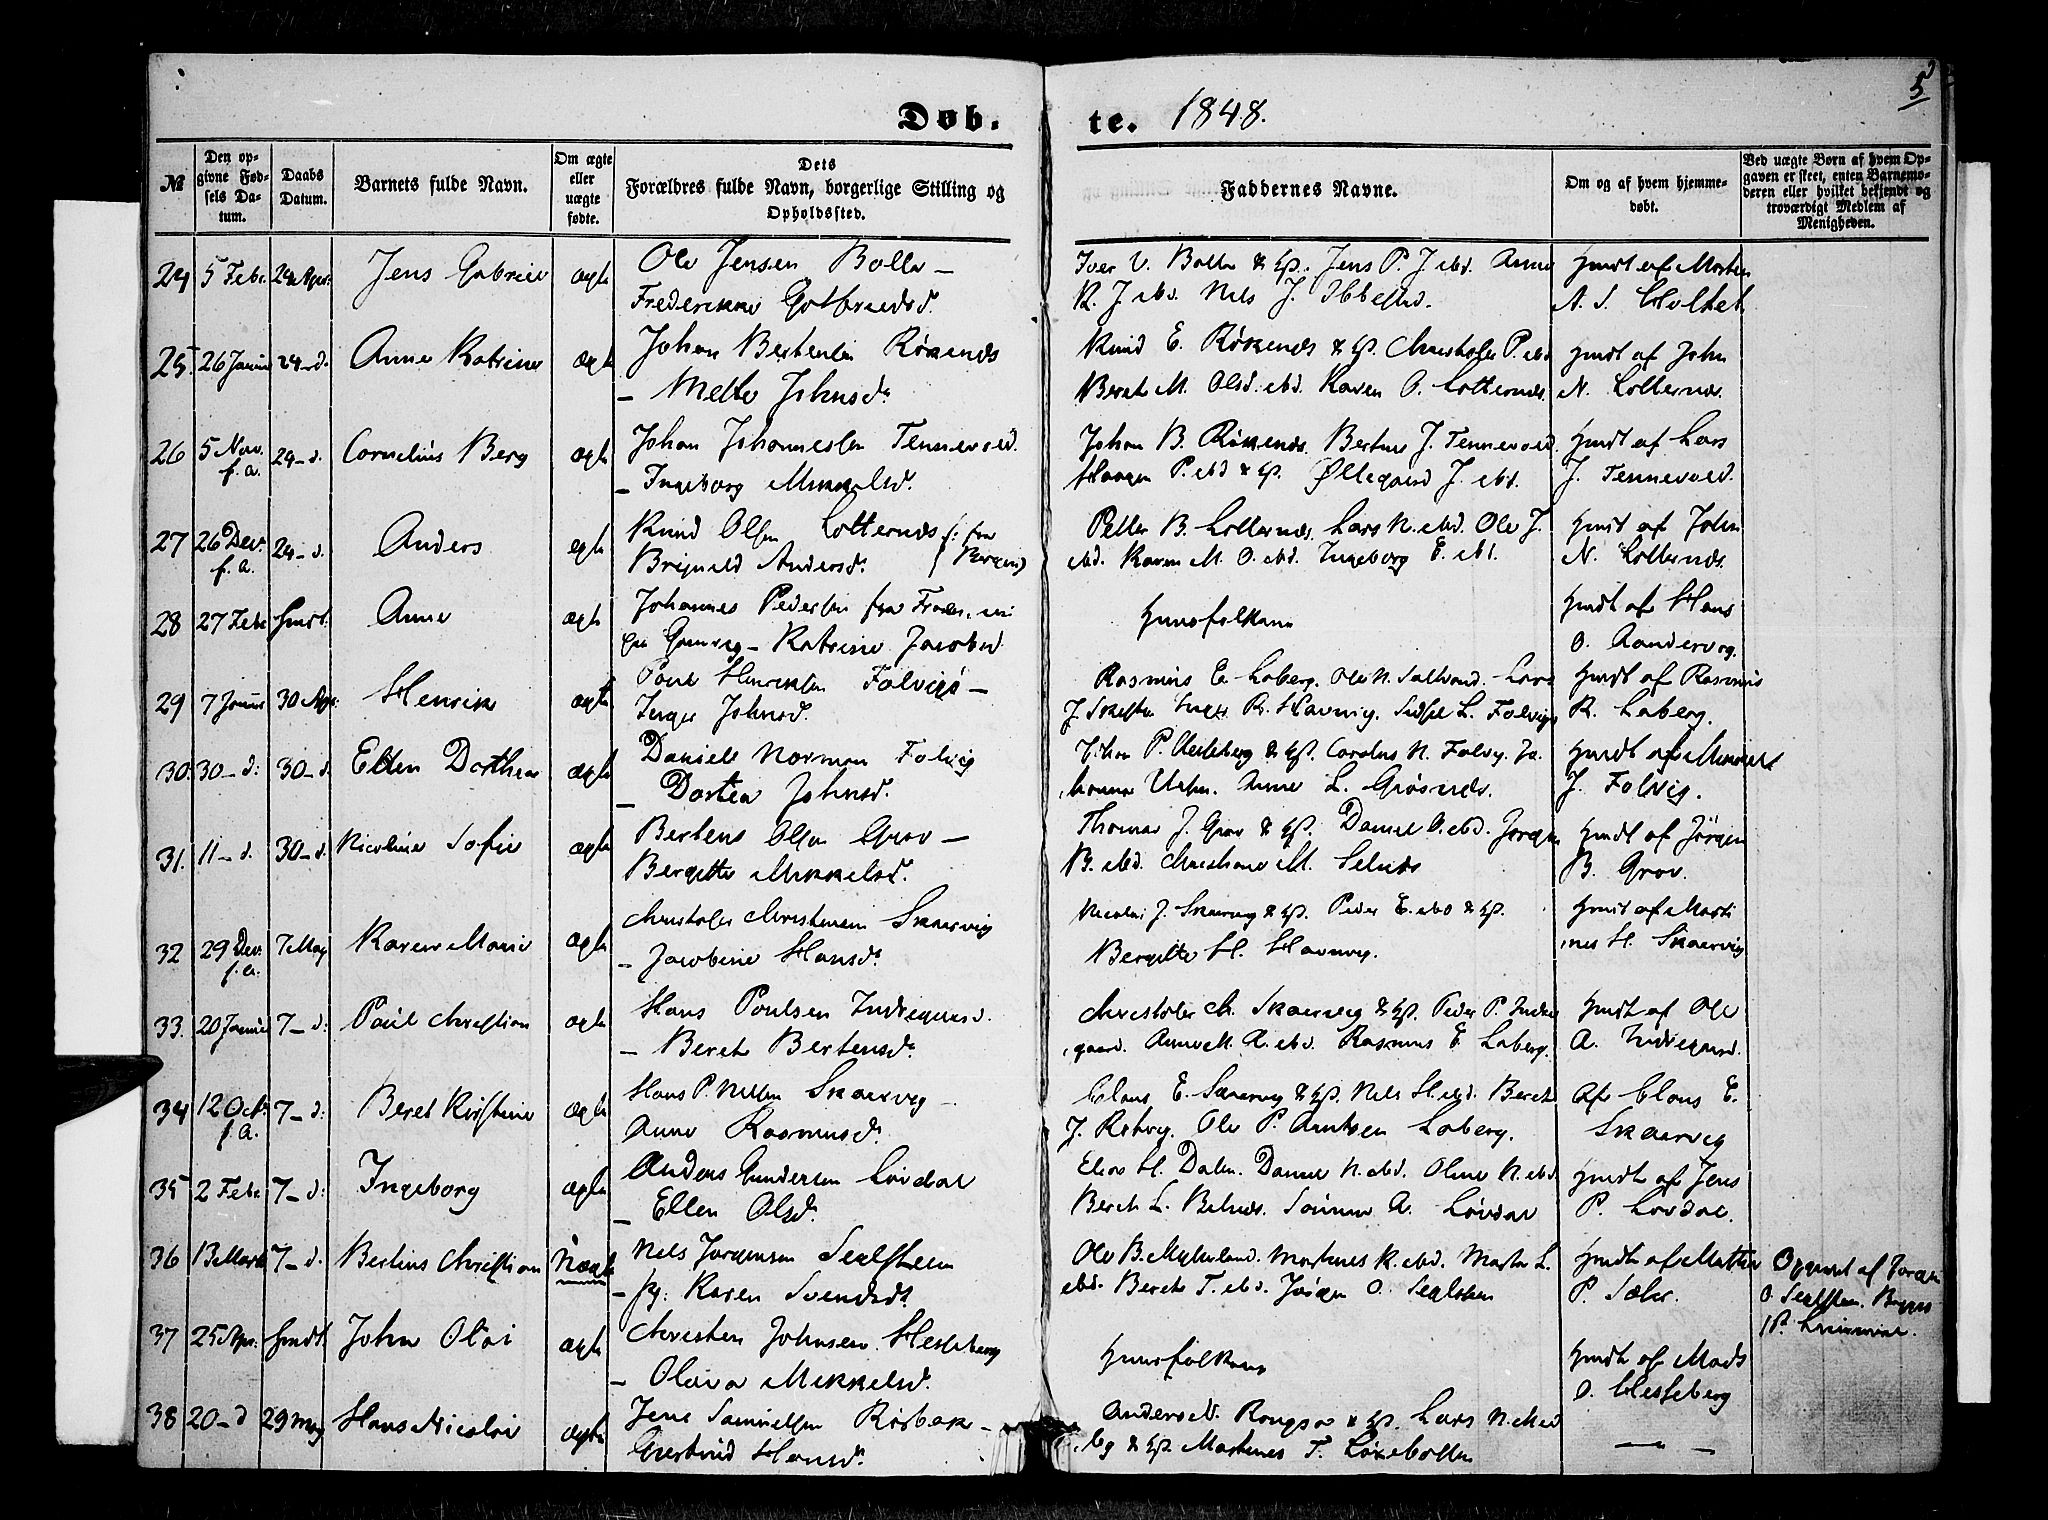 5
Døb. te. 1848.
№
Den op-
givne Fød-
sels Da-
tum.
Daabs
Datum.
Barnets fulde Navn.
Om ægte
eller
uægte
fødte.
Dets
Forældres fulde Navn, borgerlige Stilling og
Opholdssted.
Faddernes Navne.
Om og af hvem hjemme-
døbt.
Ved uægte Børn af hvem Op-
gaven er skeet, enten Barnemo-
deren eller hvilket bekjendt og
troværdigt Medlem af
Menigheden.
24 5 Febr. 24 Apr. Jens Gabriel ægte Ole Jensen Bolle –
Frederikke
Iver V. Bolle & Hst. Jens P. J. ebd. Anne
K. J. ebd. Nels J. Ibbestad.
Hmdt af Morten
A. S. Holtet
25. 26 Januar 24 – d. Anne Katrine ægte Johan Bertensen Røkenæs
– Mette Johnsd.
Knud E. Røkenæs & Hst. Christofer P. ebd
Beret M. Olsd. ebd. Karen O. Lotternæs.
Hmdt af John
N. Lotternæs.
26 5 Nov. f. a. 24 – d. Cornelius Berg ægte Johan Johannessen Tennevold.
– Ingeborg Mikkelsd.
Johan B. Røkenæs. J. Tennevold.
Haagen P. ebd & Hst. Øllegaard J. ebd.
Hmdt af Lars
J. Tennevold.
27 26 Dec. f. a. 24 – d. Anders ægte Knud Olsen Lotternæs (: fra
Andersd. Bergen)
Petter B. Lotternæs. Lars N. ebd. Ole J.
ebd. Karen M. O. ebd. Ingeborg E. ebd.
Hmdt af John
N. Lotternæs.
28 27 Febr Hmdt. Anne ægte Johannes Pedersen fra
– Katrine Jacobsd
Huusfolkene
Hmdt af Hans
O. Aandervog.
29 7 Januar 30 Apr. Henrik ægte Poul Henriksen Folvig –
Inger Johnsd.
Rasmus E. Laberg. Ole N. – Lars
J. Inger R. Havnvig. Sidsel L. Folvig
Hmdt af Rasmus
R. Laberg.
30. 30 – d. 30 – d. Ellen Dorthea ægte Daniel Norman Folvig
– Dortea Johnsd.
Johan P. Hesleberg & Hst. N. Folvig. Jo-
hanna Anne L. Grøsnæs.
Hmdt af
J. Folvig.
31. 11 – d. 30 – d. Nicoline Sofie ægte Bertens Olsen Grov –
Bergitte Mikkelsd.
Thomas J. Grov & Hst. Daniel O. ebd. Jørgen
B. ebd. Christiane M.
Hmdt af Jörgen
B. Grov.
32 29 Dec. f. a. 7 May Karen Marie ægte Christofer Christensen Skaervig
– Jacobine Hansd.
Nicolai J. Skaervig & Hst. Peder E. ebd & Hst.
Bergitte H. Havnvig.
Hmdt af Marti-
nus H. Skaervig
33. 20 Januar 7 – d. Paul Christian ægte Hans Poulsen Indregaard.
– Beret Bertensd.
Christofer Ch. Skaervig & Hst. Peder P. Indre-
gaard. Anne M. A. ebd. Rasmus E. Laberg.
Hmdt af Ole
A. Indregaard.
34 12 Oct. f. a. 7 – d. Beret Kirstine ægte Hans P. Nelsen Skaervig –
Anne Rasmusd.
Claus E. Skaervig & Hst. Nels H. ebd. Beret
J. Ole P. Arntsen Laberg.
Af Claus E.
Skaervig
35 2 Febr. 7 – d. Ingeborg ægte Anders Gundersen Lovdal
– Ellen Olsd.
Elias H. Dalen. Daniel N. ebd. Oline N. ebd.
Beret L. A. Lövdal
Hmdt af Jens
P. Lovdal.
36 13 Marts 7 – d. Bertius Christian Uægte Nels Jorgensen
– pg: Karen Svendsd.
Ole B. Myrland. Martines K. ebd. Morten L.
ebd. Berit T. ebd. Jörgen O.
Hmdt af
P. Sæter.
Opgivet af Jorgen
O.
37 25 Apr. Hmdt. John Olai ægte Christen Johnsen Hesleberg
– Olava Mikkelsd.
Huusfolkene
Hmdt af Mads
O. Hesleberg
38 20 – d 29 May Hans Nicolai ægte Jens Samuelsen Rørbæk –
Hansd.
Anders N. & Hst. Lars N.
& Hst. Martines T.
— –